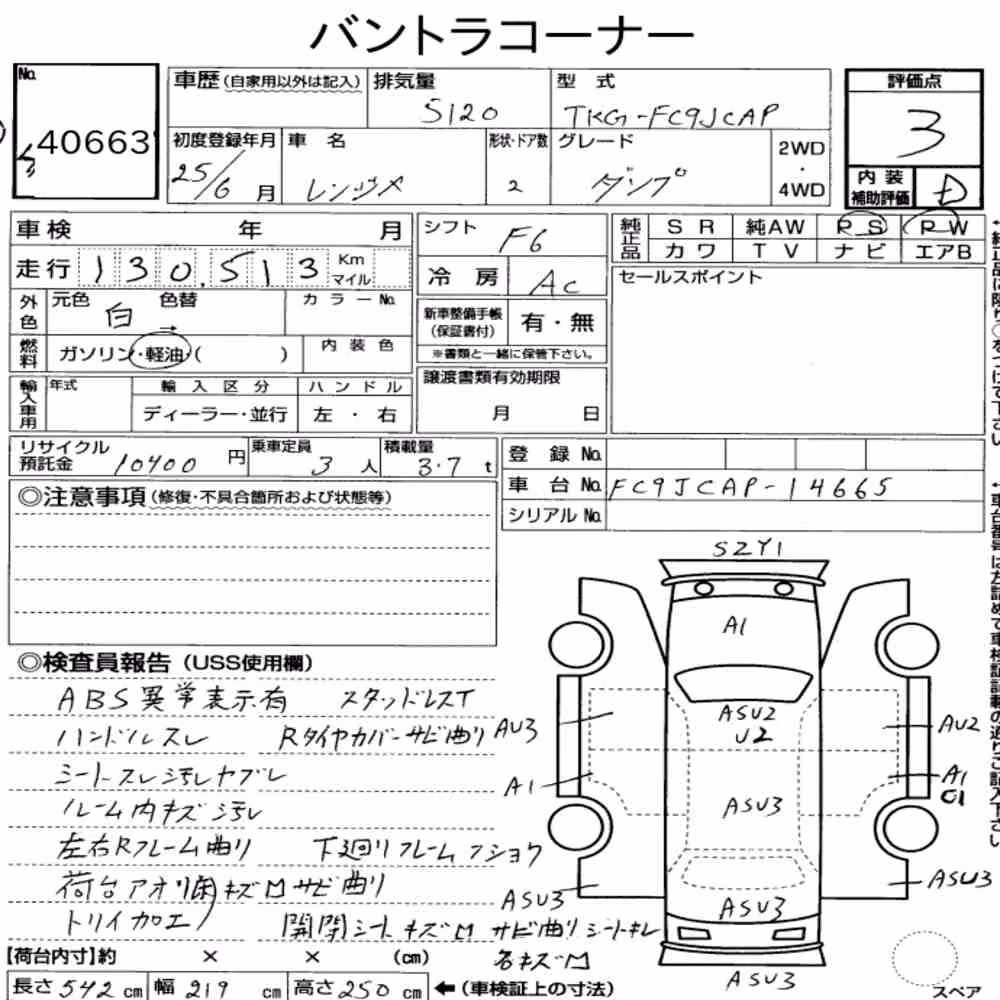 バントラコーナー
No.
40663
車歴(自家用以外は記入)
排気量
5120
型 式
TKG-FC9JCAP
評価点
3
初度登録年月
25/6 月
車 名
レンジャー
形状・ドア数
2
グレード
ダンプ
2WD
・
4WD
内 装
補助評価
D
車検 年 月
シフト
F6
純正品
S R 純AW P S P W
カ ワ T V ナ ビ エアB
走行 130,513
Km
マイル
冷 房
AC
セールスポイント
外色
元色 色替
白 →
カ ラ ー No.
新車整備手帳
(保証書付)
有・無
※書類と一緒に保管下さい。
燃料
ガソリン・軽油・( )
内 装 色
譲渡書類有効期限
月 日
輸入車用
年式
輸 入 区 分
ハ ン ド ル
ディーラー・並行
左 ・ 右
リサイクル
預託金 10400 円
乗車定員
3 人
積載量
3.7 t
登 録 No.
車 台 No. FC9JCAP-14665
シリアル No.
◎注意事項(修復・不具合箇所および状態等)
◎検査員報告(USS使用欄)
ABS異常表示有 スタッドレスT
ハンドルスレ Rタイヤカバーサビ曲り
シートスレ汚レヤブレ
ルーム内キズ汚レ
左右Rフレーム曲り 下廻りフレームフショク
荷台アオリ菌キズMサビ曲り
トリイ加工
開閉シートキズM サビ曲りシートキレ
各キズM
SZY1
A1
ASU2
U2
AU3
AU2
A1
A1
C1
ASU3
ASU3
ASU3
ASU3
ASU3
【荷台内寸】約 × × (cm)
長さ542cm 幅 219 cm 高さ250cm ←(車検証上の寸法)
スペア